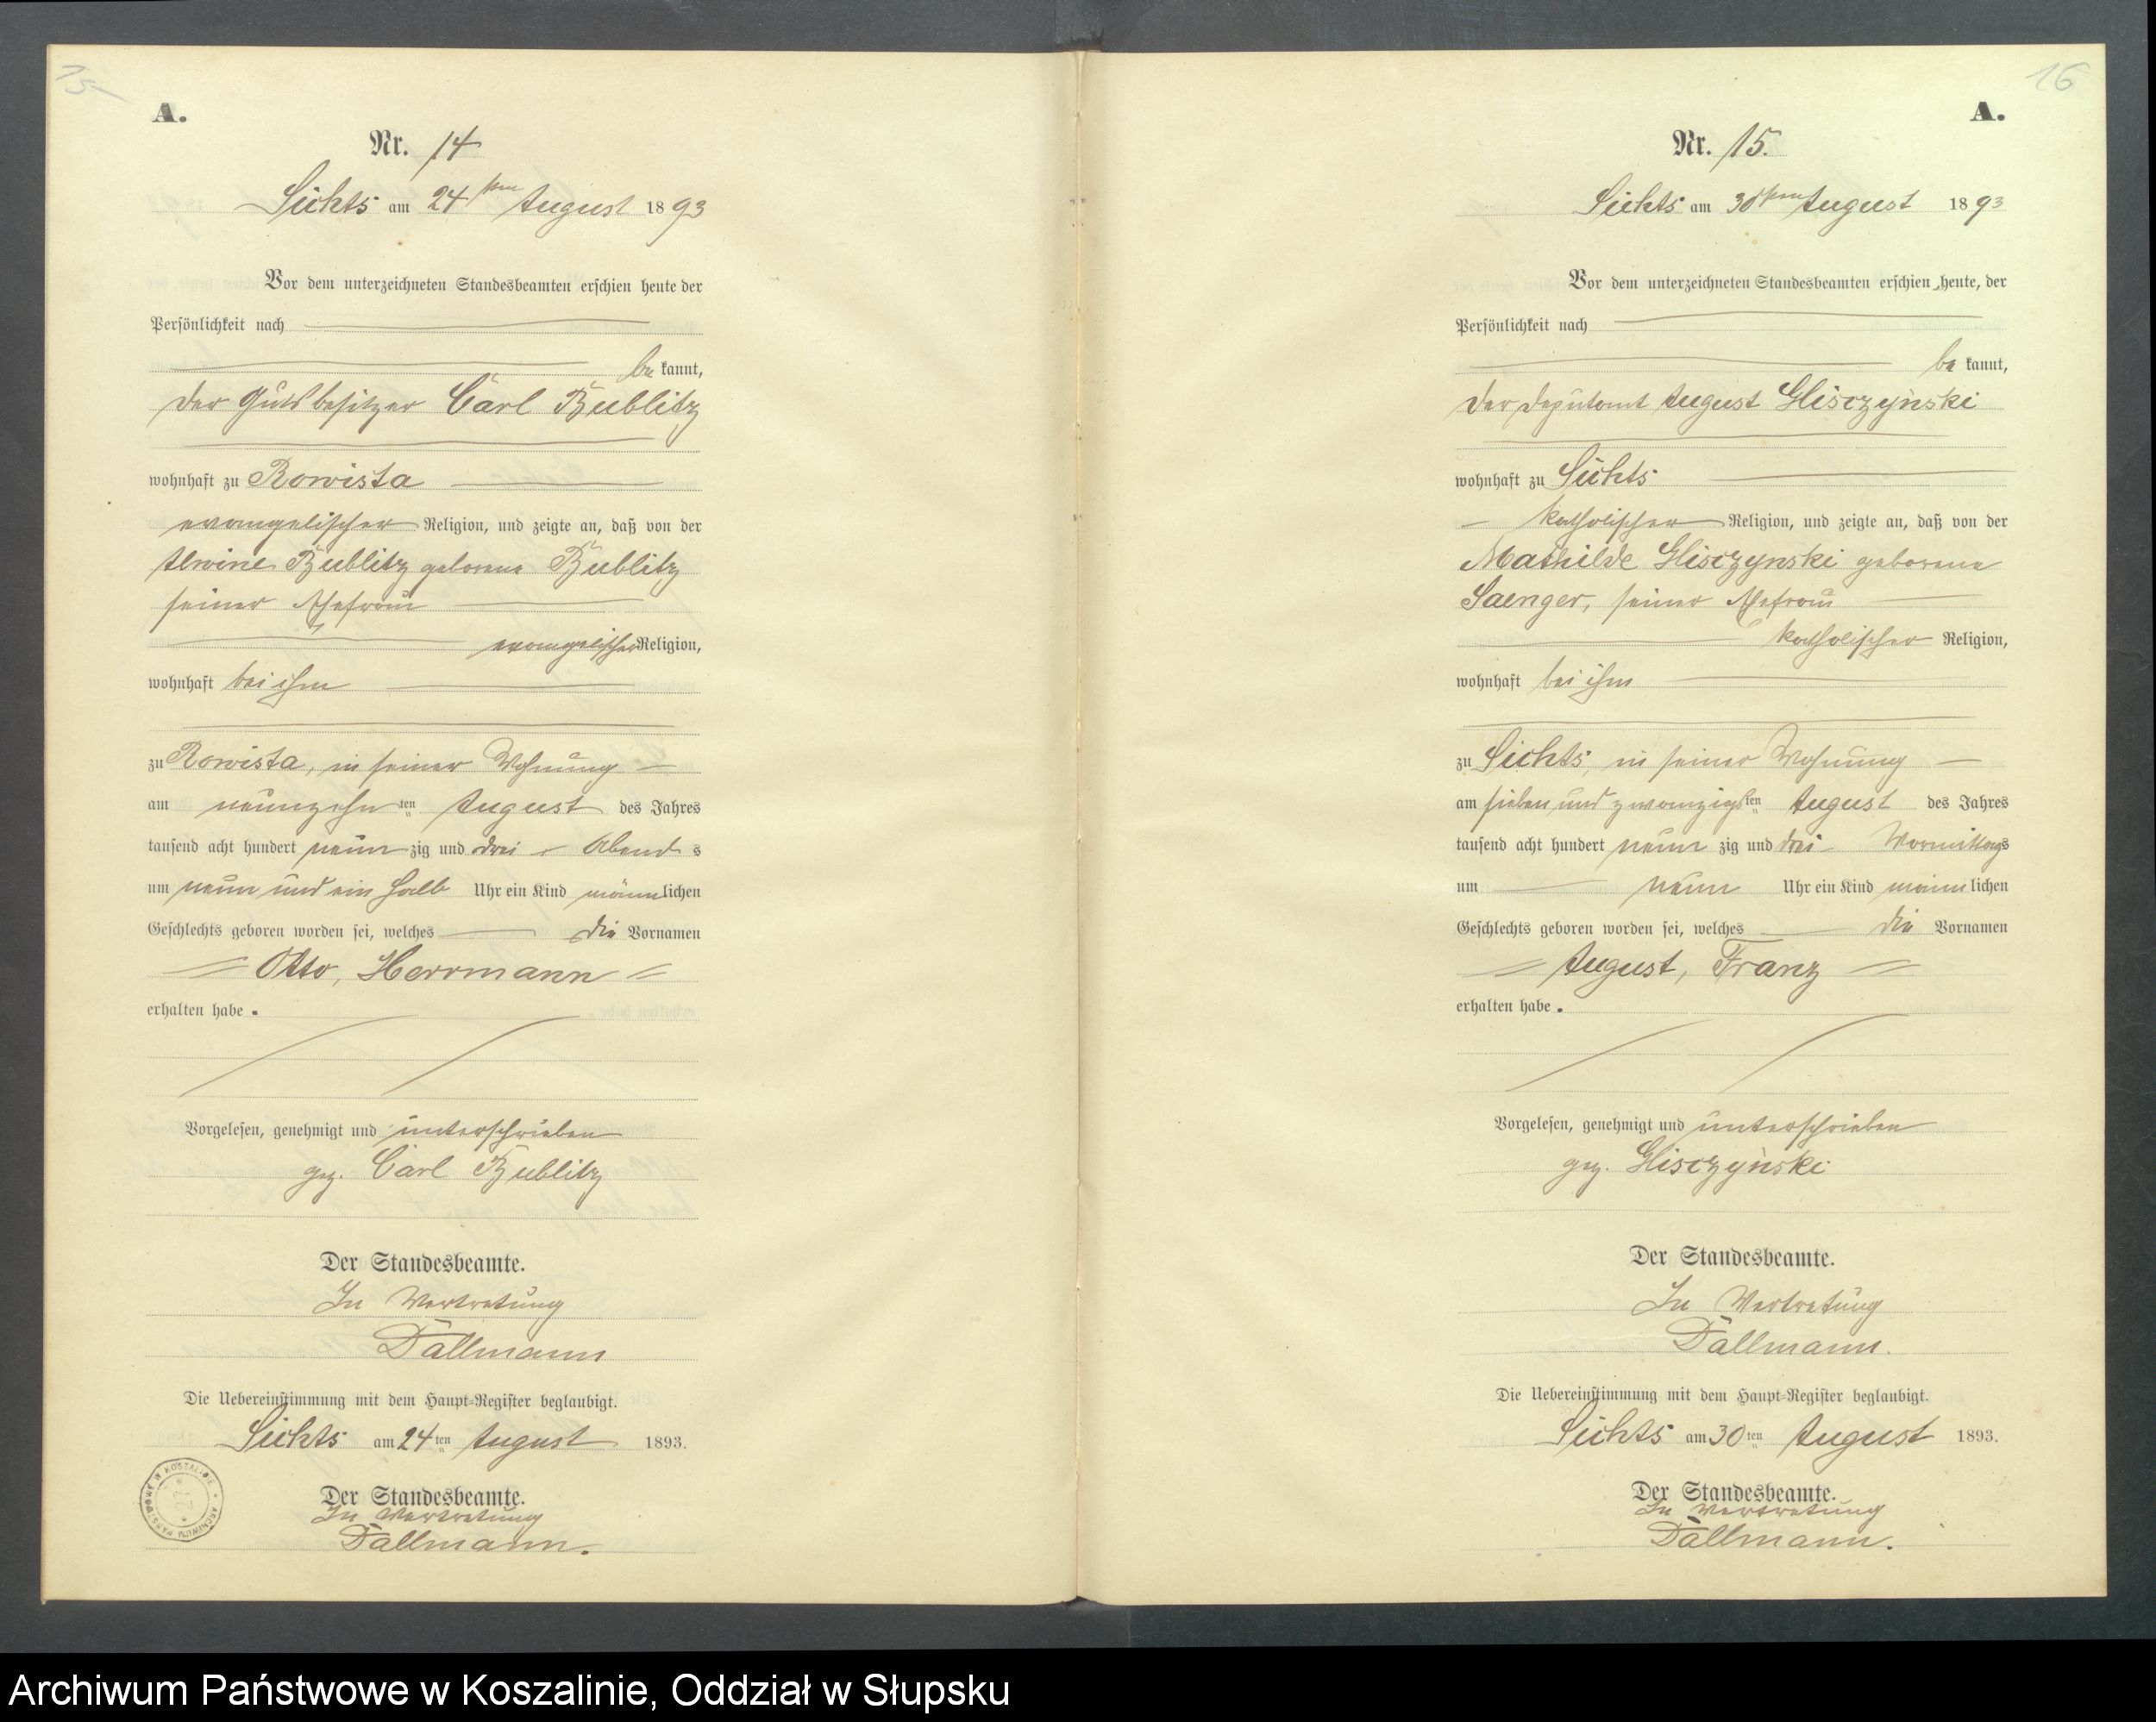 15
A.
Nr. 14
Suckts am 24ten August 1893
Vor dem unterzeichneten Standesbeamten erschien heute der
Persönlichkeit nach
be kannt,
der Gutsbesitzer Carl Bublitz
wohnhaft zu Rowista
evangelischer Religion, und zeigte an, daß von der
Alwine Bublitz geborene Bublitz
seiner Ehefrau
evangelischer Religion,
wohnhaft bei ihm
zu Rowista, in seiner Wohnung
am neunzehn ten August des Jahres
tausend acht hundert neun zig und drei Abend s
um neun und ein halb Uhr ein Kind männ lichen
Geschlechts geboren worden sei, welches die Vornamen
Otto, Herrmann
erhalten habe.
Vorgelesen, genehmigt und unterschrieben
gez. Carl Bublitz
Der Standesbeamte.
In Vertretung
Dallmann
Die Uebereinstimmung mit dem Haupt-Register beglaubigt.
Suckts am 24ten August 1893.
Der Standesbeamte.
In Vertretung
Dallmann.
ARCHIWUM PAŃSTWOWE W KOSZALINIE
* 27 *
16
A.
Nr. 15.
Suckts am 30ten August 1893
Vor dem unterzeichneten Standesbeamten erschien heute, der
Persönlichkeit nach
be kannt,
der Deputant August Glisczynski
wohnhaft zu Suckts
katholischer Religion, und zeigte an, daß von der
Mathilde Glisczynski geborene
Saenger, seiner Ehefrau
katholischer Religion,
wohnhaft bei ihm
zu Suckts, in seiner Wohnung
am sieben und zwanzigs ten August des Jahres
tausend acht hundert neun zig und drei Vormittags
um neun Uhr ein Kind männ lichen
Geschlechts geboren worden sei, welches die Vornamen
August, Franz
erhalten habe.
Vorgelesen, genehmigt und unterschrieben
gez. Glisczynski
Der Standesbeamte.
In Vertretung
Dallmann.
Die Uebereinstimmung mit dem Haupt-Register beglaubigt.
Suckts am 30ten August 1893.
Der Standesbeamte.
In Vertretung
Dallmann.
Archiwum Państwowe w Koszalinie, Oddział w Słupsku